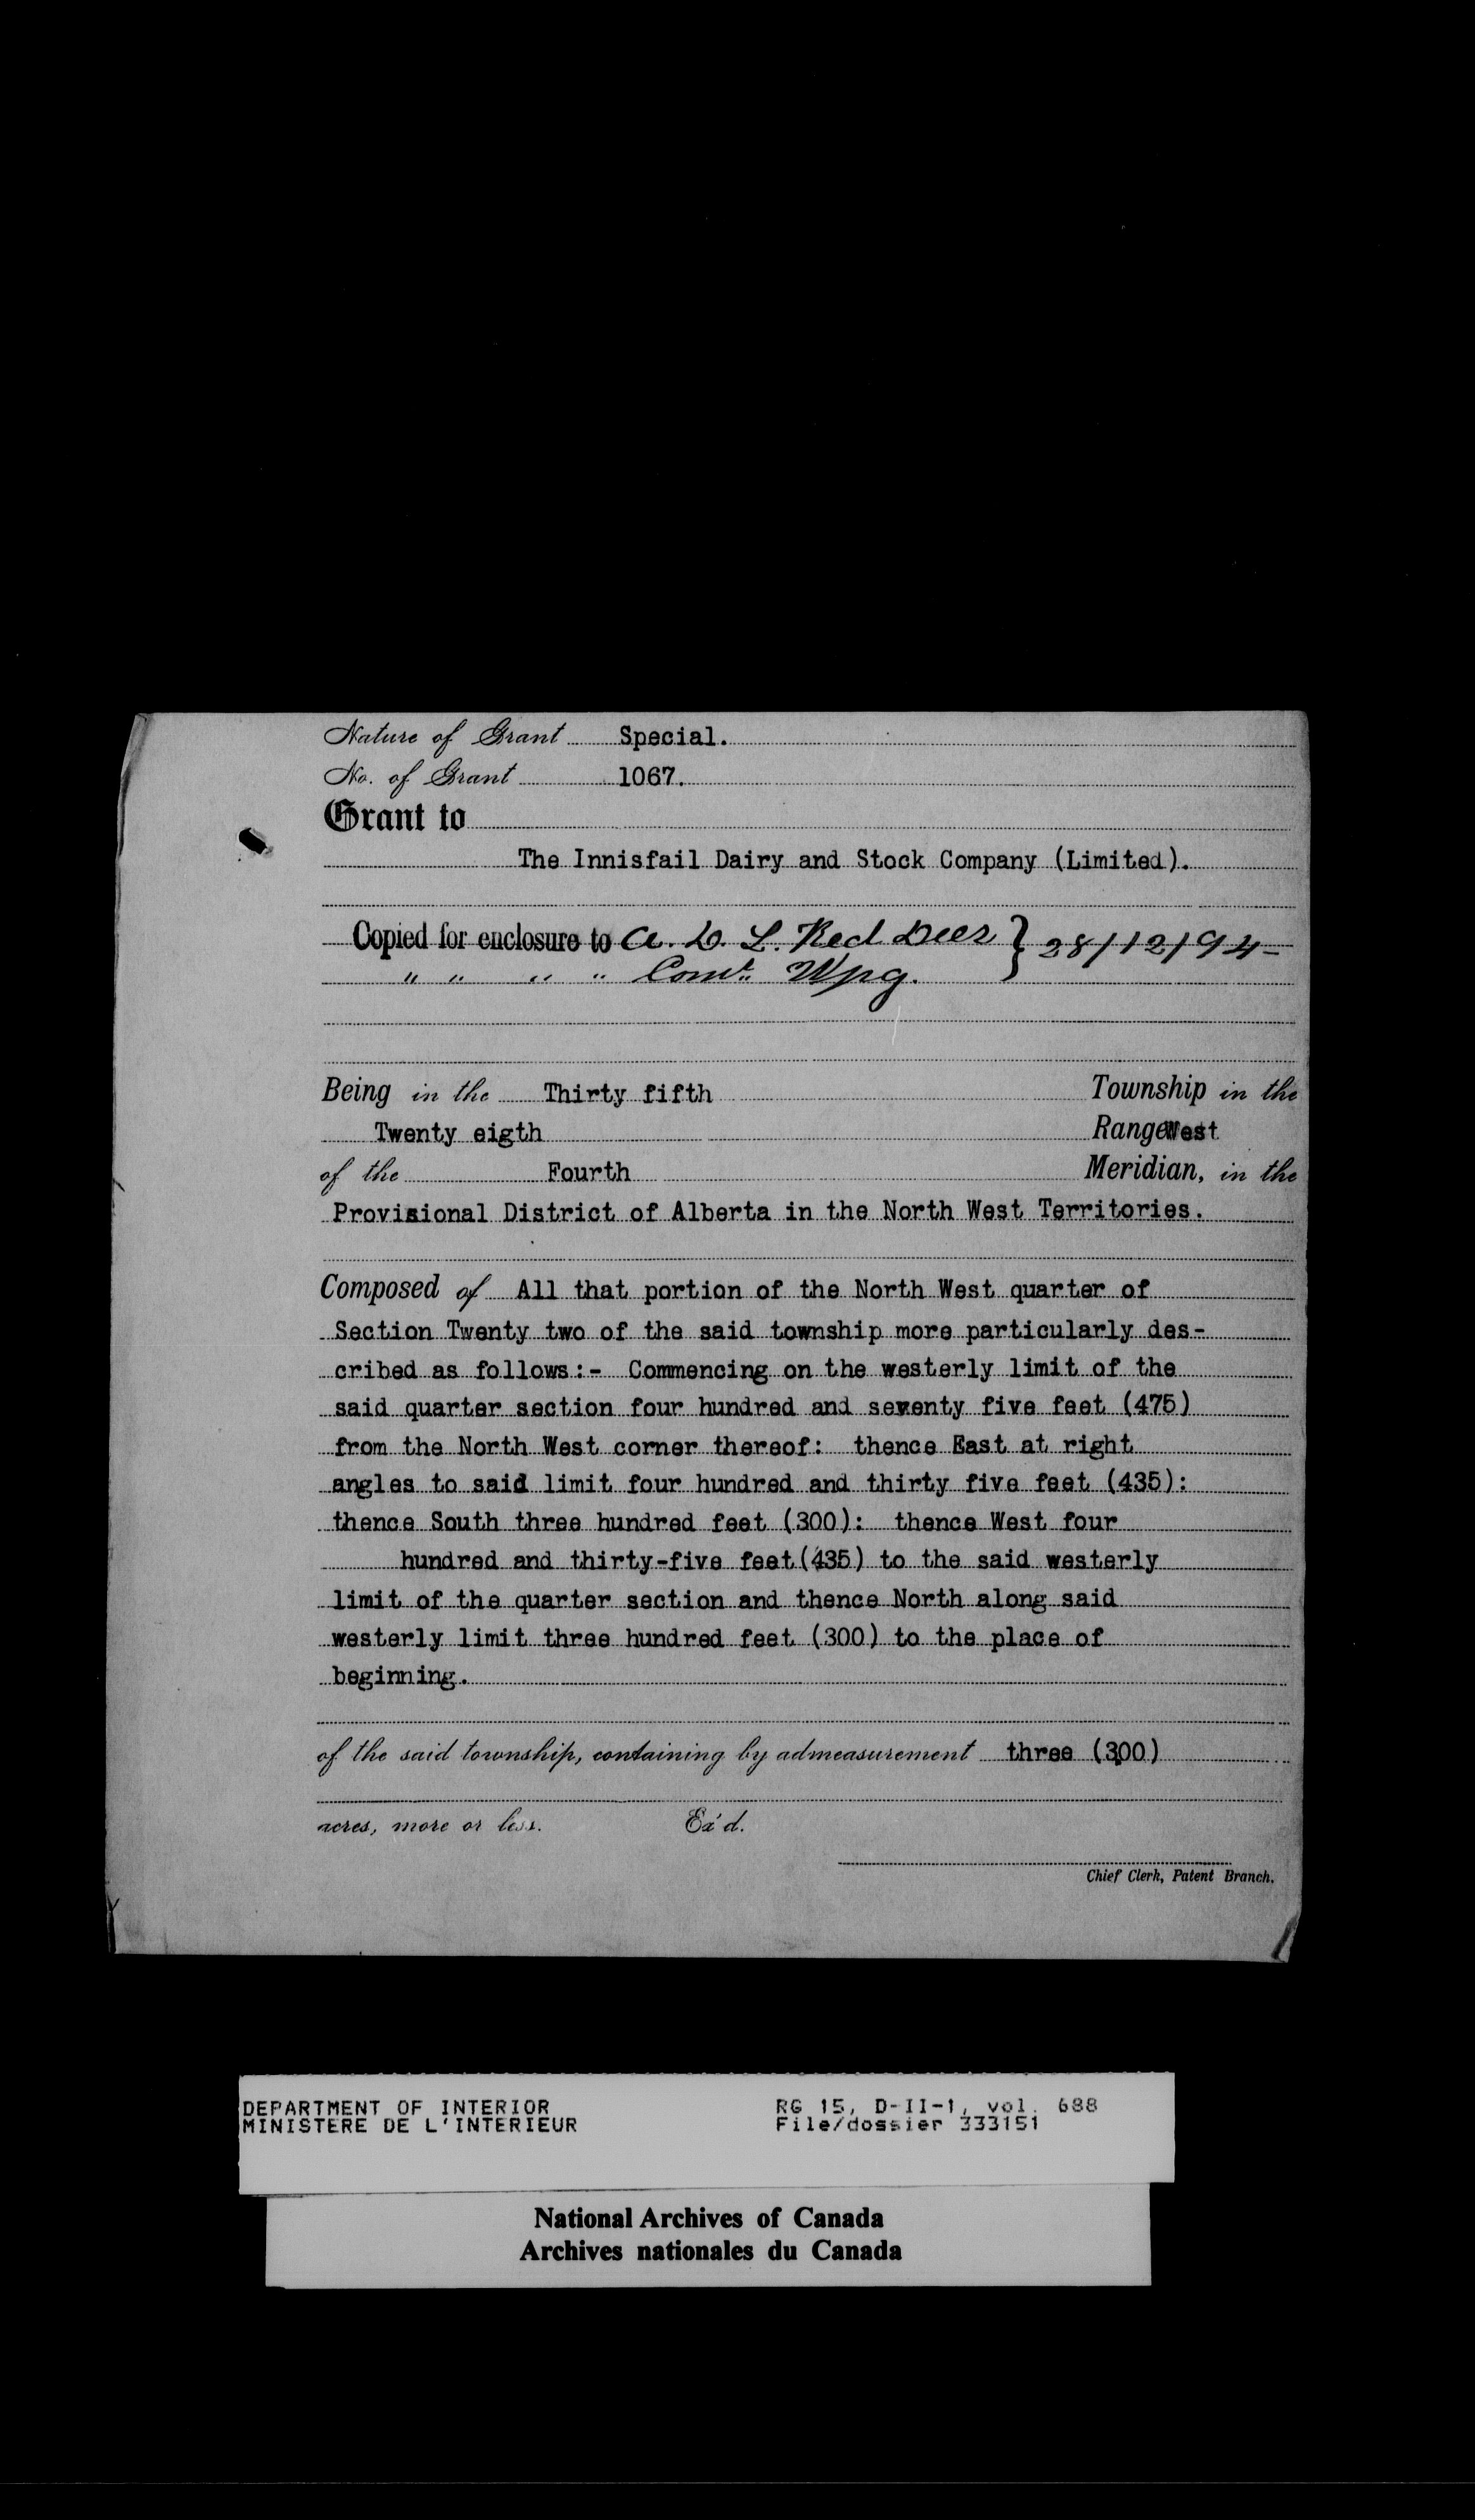 Nature of Grant Special.
No. of Grant 1067.
Grant to
The Innisfail Dairy and Stock Company (Limited).
Copied for enclosure to A. D. L. Red Deer } 28/12/94
" " " " Comr. Wpg.
Being in the Thirty fifth Township in the
Twenty eigth Range West
of the Fourth Meridian, in the
Provisional District of Alberta in the North West Territories.
Composed of All that portion of the North West quarter of
Section Twenty two of the said township more particularly des-
cribed as follows:- Commencing on the westerly limit of the
said quarter section four hundred and seventy five feet (475)
from the North West corner thereof: thence East at right
angles to said limit four hundred and thirty five feet (435):
thence South three hundred feet (300): thence West four
hundred and thirty-five feet (435) to the said westerly
limit of the quarter section and thence North along said
westerly limit three hundred feet (300) to the place of
beginning.
of the said township, containing by admeasurement three (3.00)
acres, more or less. Ex'd.
Chief Clerk, Patent Branch.
DEPARTMENT OF INTERIOR RG 15, D-II-1, vol. 688
MINISTERE DE L'INTERIEUR File/dossier 333151
National Archives of Canada
Archives nationales du Canada